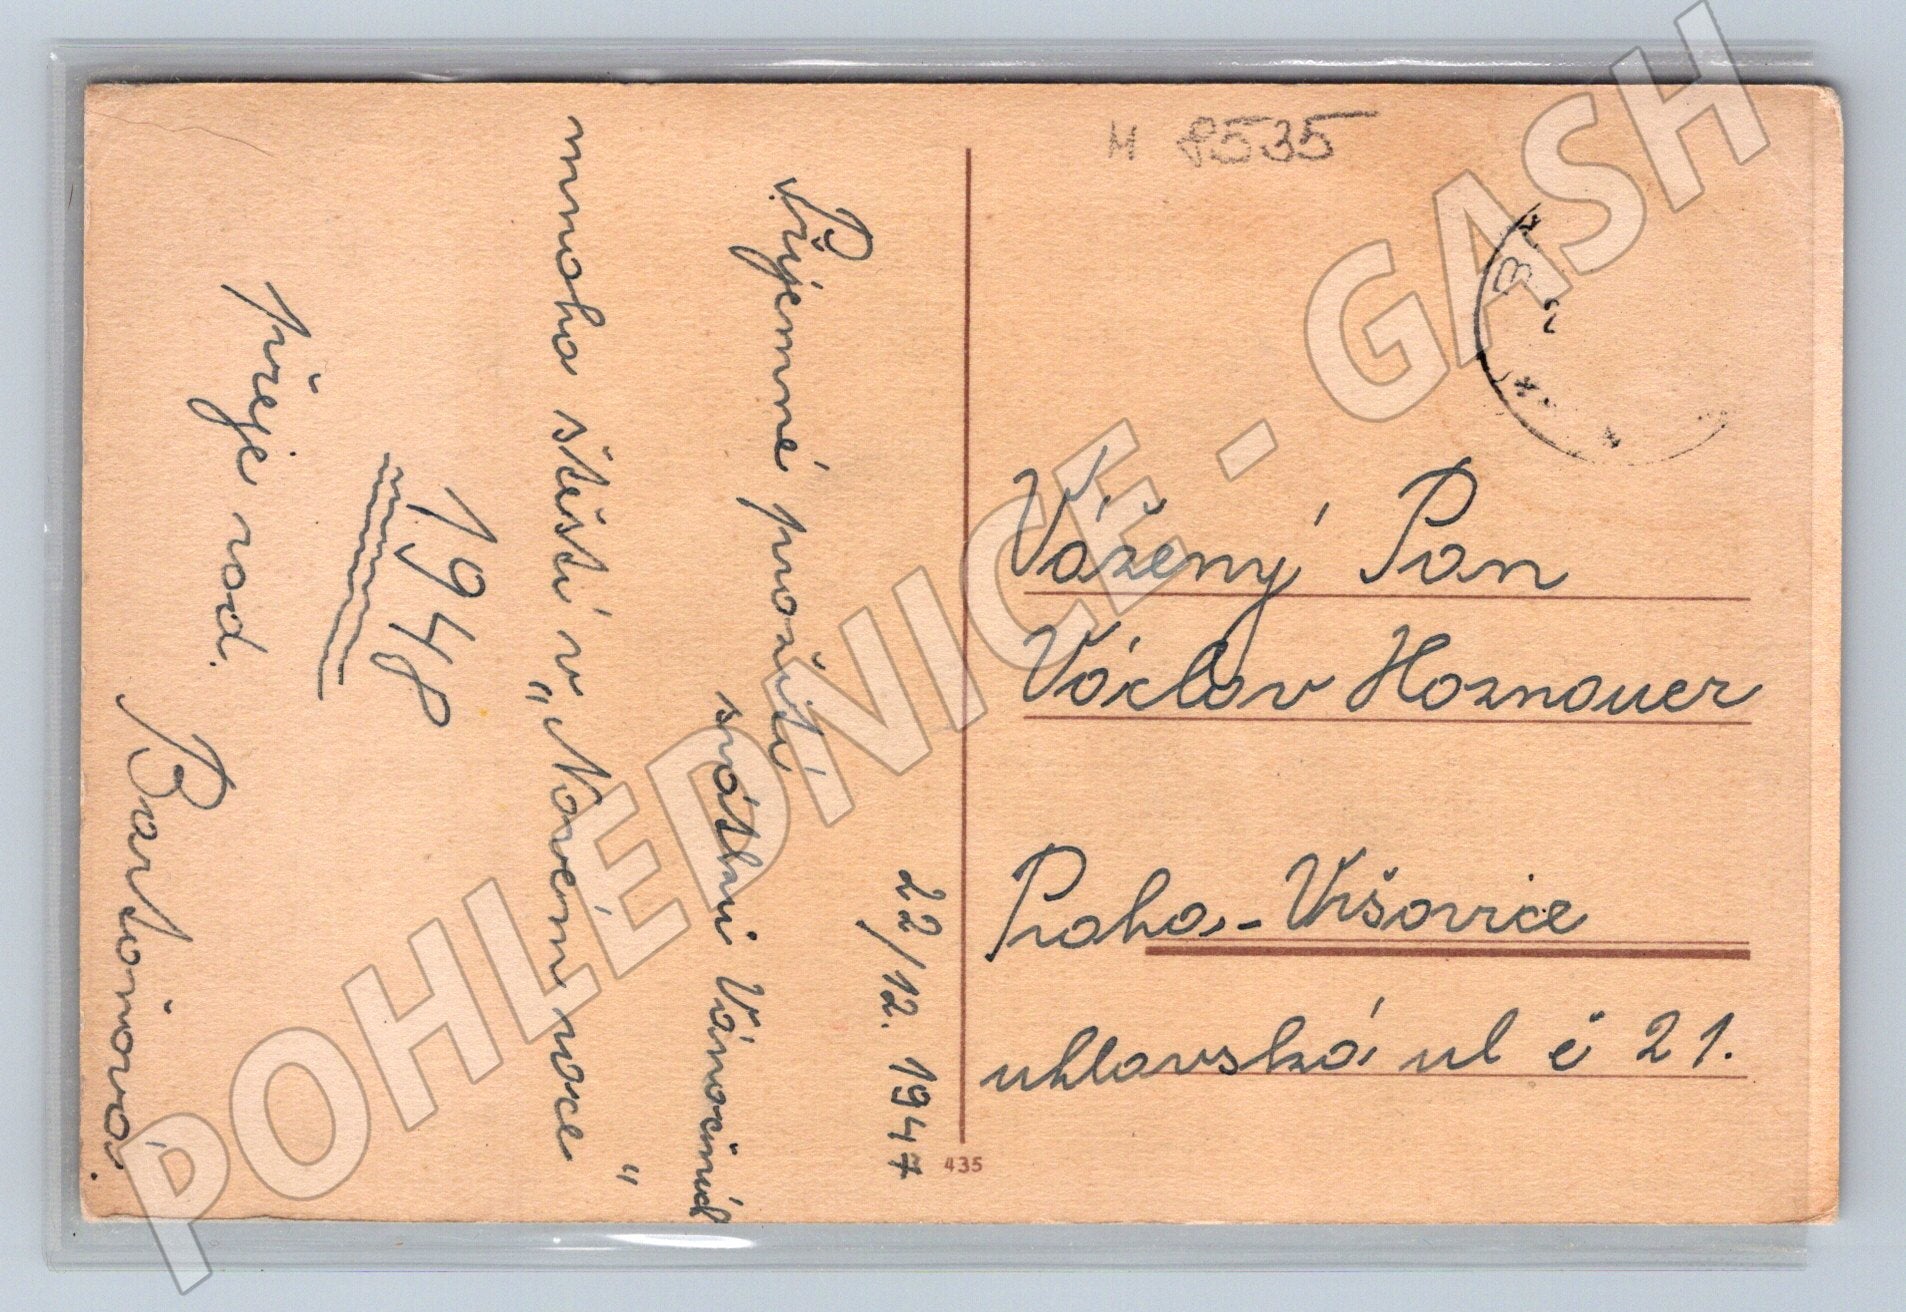 22/12. 1947
Příjemné prožití
svátků Vánočních
mnoho štěstí v
„Novém roce"
1948
přeje rod.
Bartoňová.
M 8535
Vážený Pan
Václav Hoznauer
Praha - Vršovice
uhlavská ul č 21.
435
POHLEDNICE - GASH